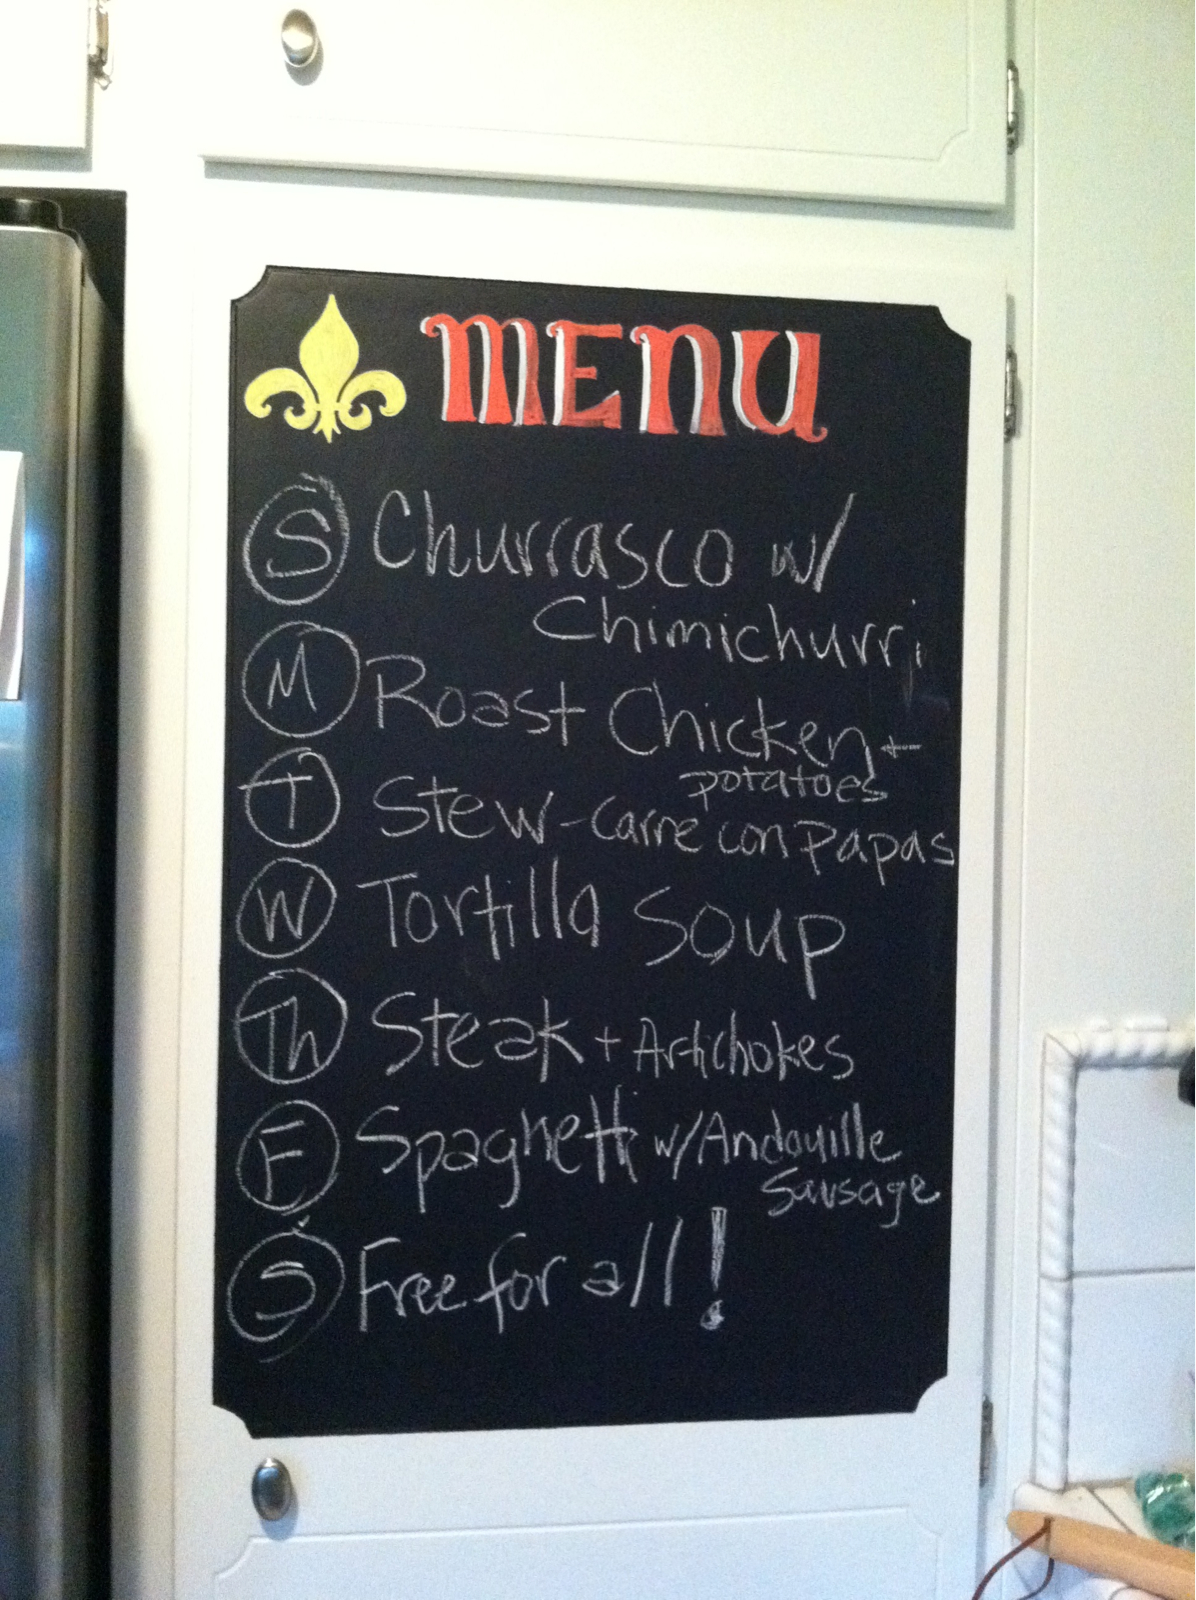 MENU
S Churrasco w/
Chimichurri
M Roast Chicken +
potatoes
T Stew - carne con papas
W Tortilla Soup
Th Steak + Artichokes
F Spaghetti w/ Andouille
Sausage
S Free for all!